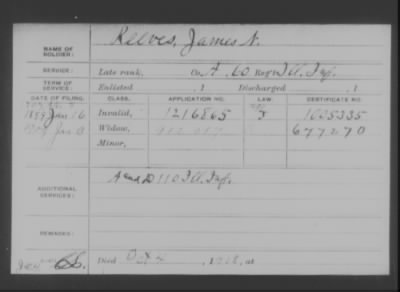 NAME OF SOLDIER: Reeves, James N.
SERVICE: Late rank, Co. A, 60 Reg't Ill. Inf.
TERM OF SERVICE: Enlisted , 1 Discharged , 1
DATE OF FILING. CLASS. APPLICATION NO. LAW. CERTIFICATE NO.
Invalid, 1216865
Widow, 677270
Minor,
ADDITIONAL SERVICES: A and D 110 Ill. Inf.
REMARKS:
Died Oct 4, 1908, at